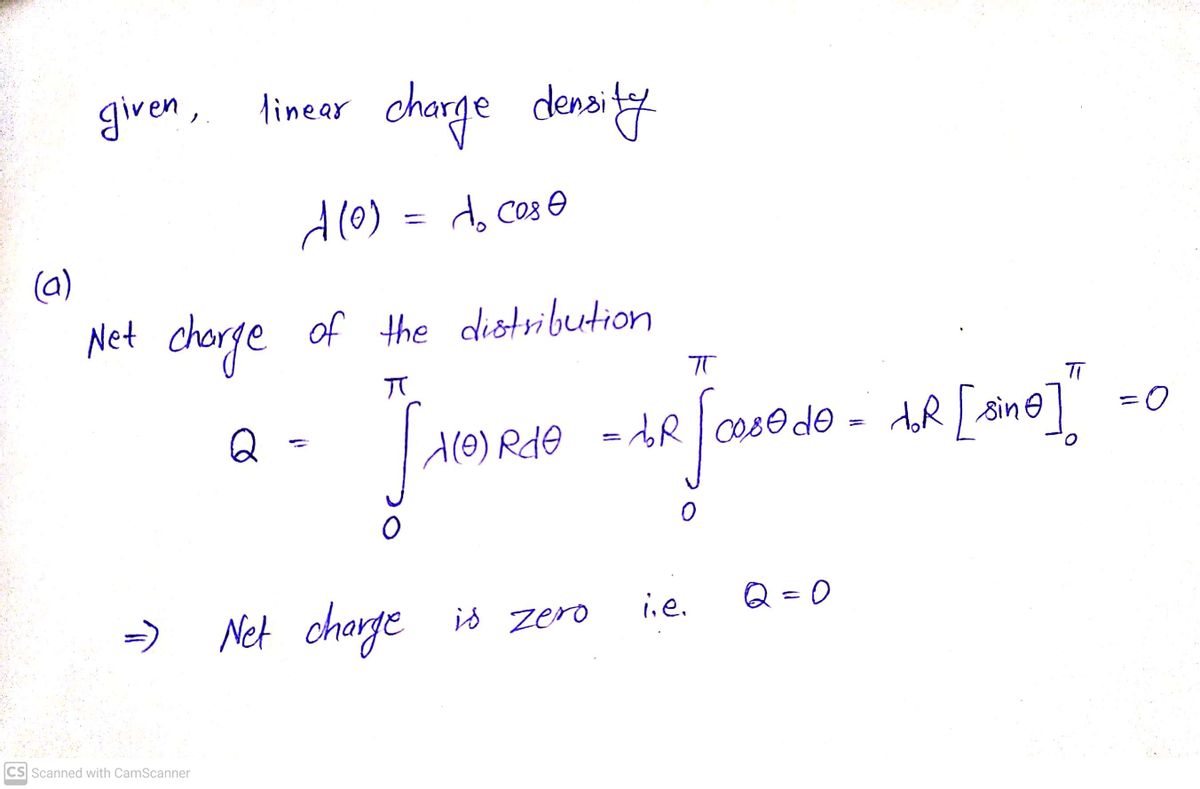 given, linear charge density
λ(θ) = λ₀ cosθ
(a)
Net charge of the distribution
Q = ∫₀^π λ(θ) Rdθ = λ₀R ∫₀^π cosθ dθ = λ₀R [sinθ]₀^π = 0
⇒ Net charge is zero i.e. Q = 0
CS Scanned with CamScanner